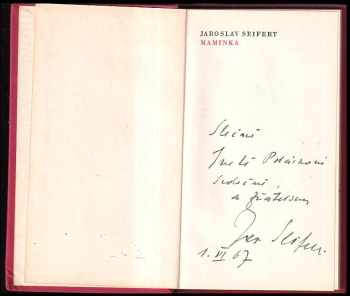 JAROSLAV SEIFERT
MAMINKA
Slečně
Ivetě Poláškové
srdečně
a přátelsky
Jar Seifert
1. VI 67